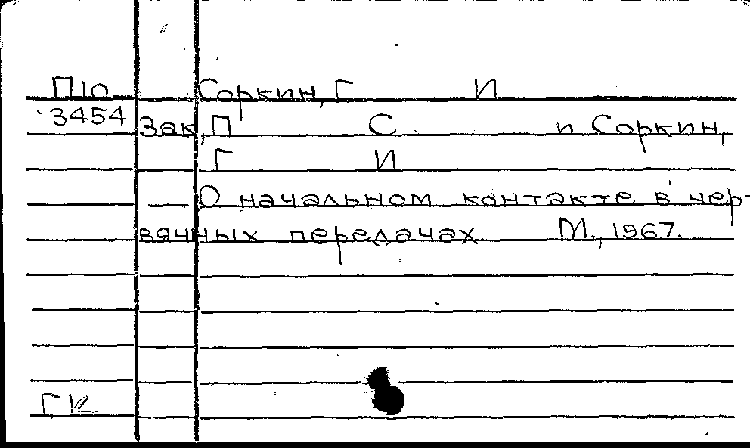 П10 Соркин, Г И
3454 Зак, П С и Соркин,
Г И
О начальном контакте в чер-
вячных передачах М., 1967.
ГК